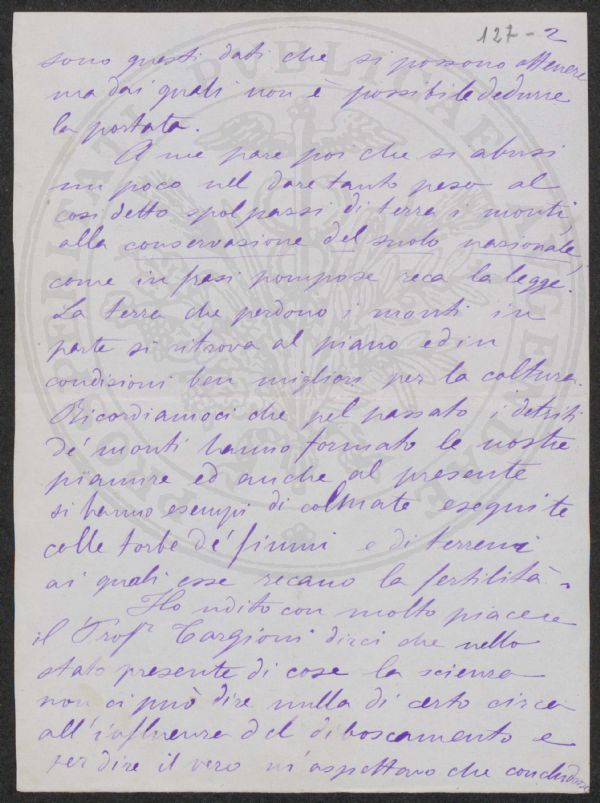 127-2
sono questi dati che si possono ottenere
ma dai quali non è possibile dedurre
la portata.
A me pare poi che si abusi
un poco nel dare tanto peso al
così detto spolparsi di terra i monti,
alla conservazione del suolo nazionale,
come in frasi pompose reca la legge.
La terra che perdono i monti in
parte si ritrova al piano ed in
condizioni ben migliori per la coltura.
Ricordiamoci che pel passato i detriti
de' monti hanno formato le nostre
pianure ed anche al presente
si hanno esempi di colmate eseguite
colle torbe de' fiumi e di terreni
ai quali esse recano la fertilità.
Ho udito con molto piacere
il Prof.r Targioni dirci che nello
stato presente di cose la scienza
non ci può dire nulla di certo circa
all'influenza del diboscamento e
per dire il vero m'aspettavo che